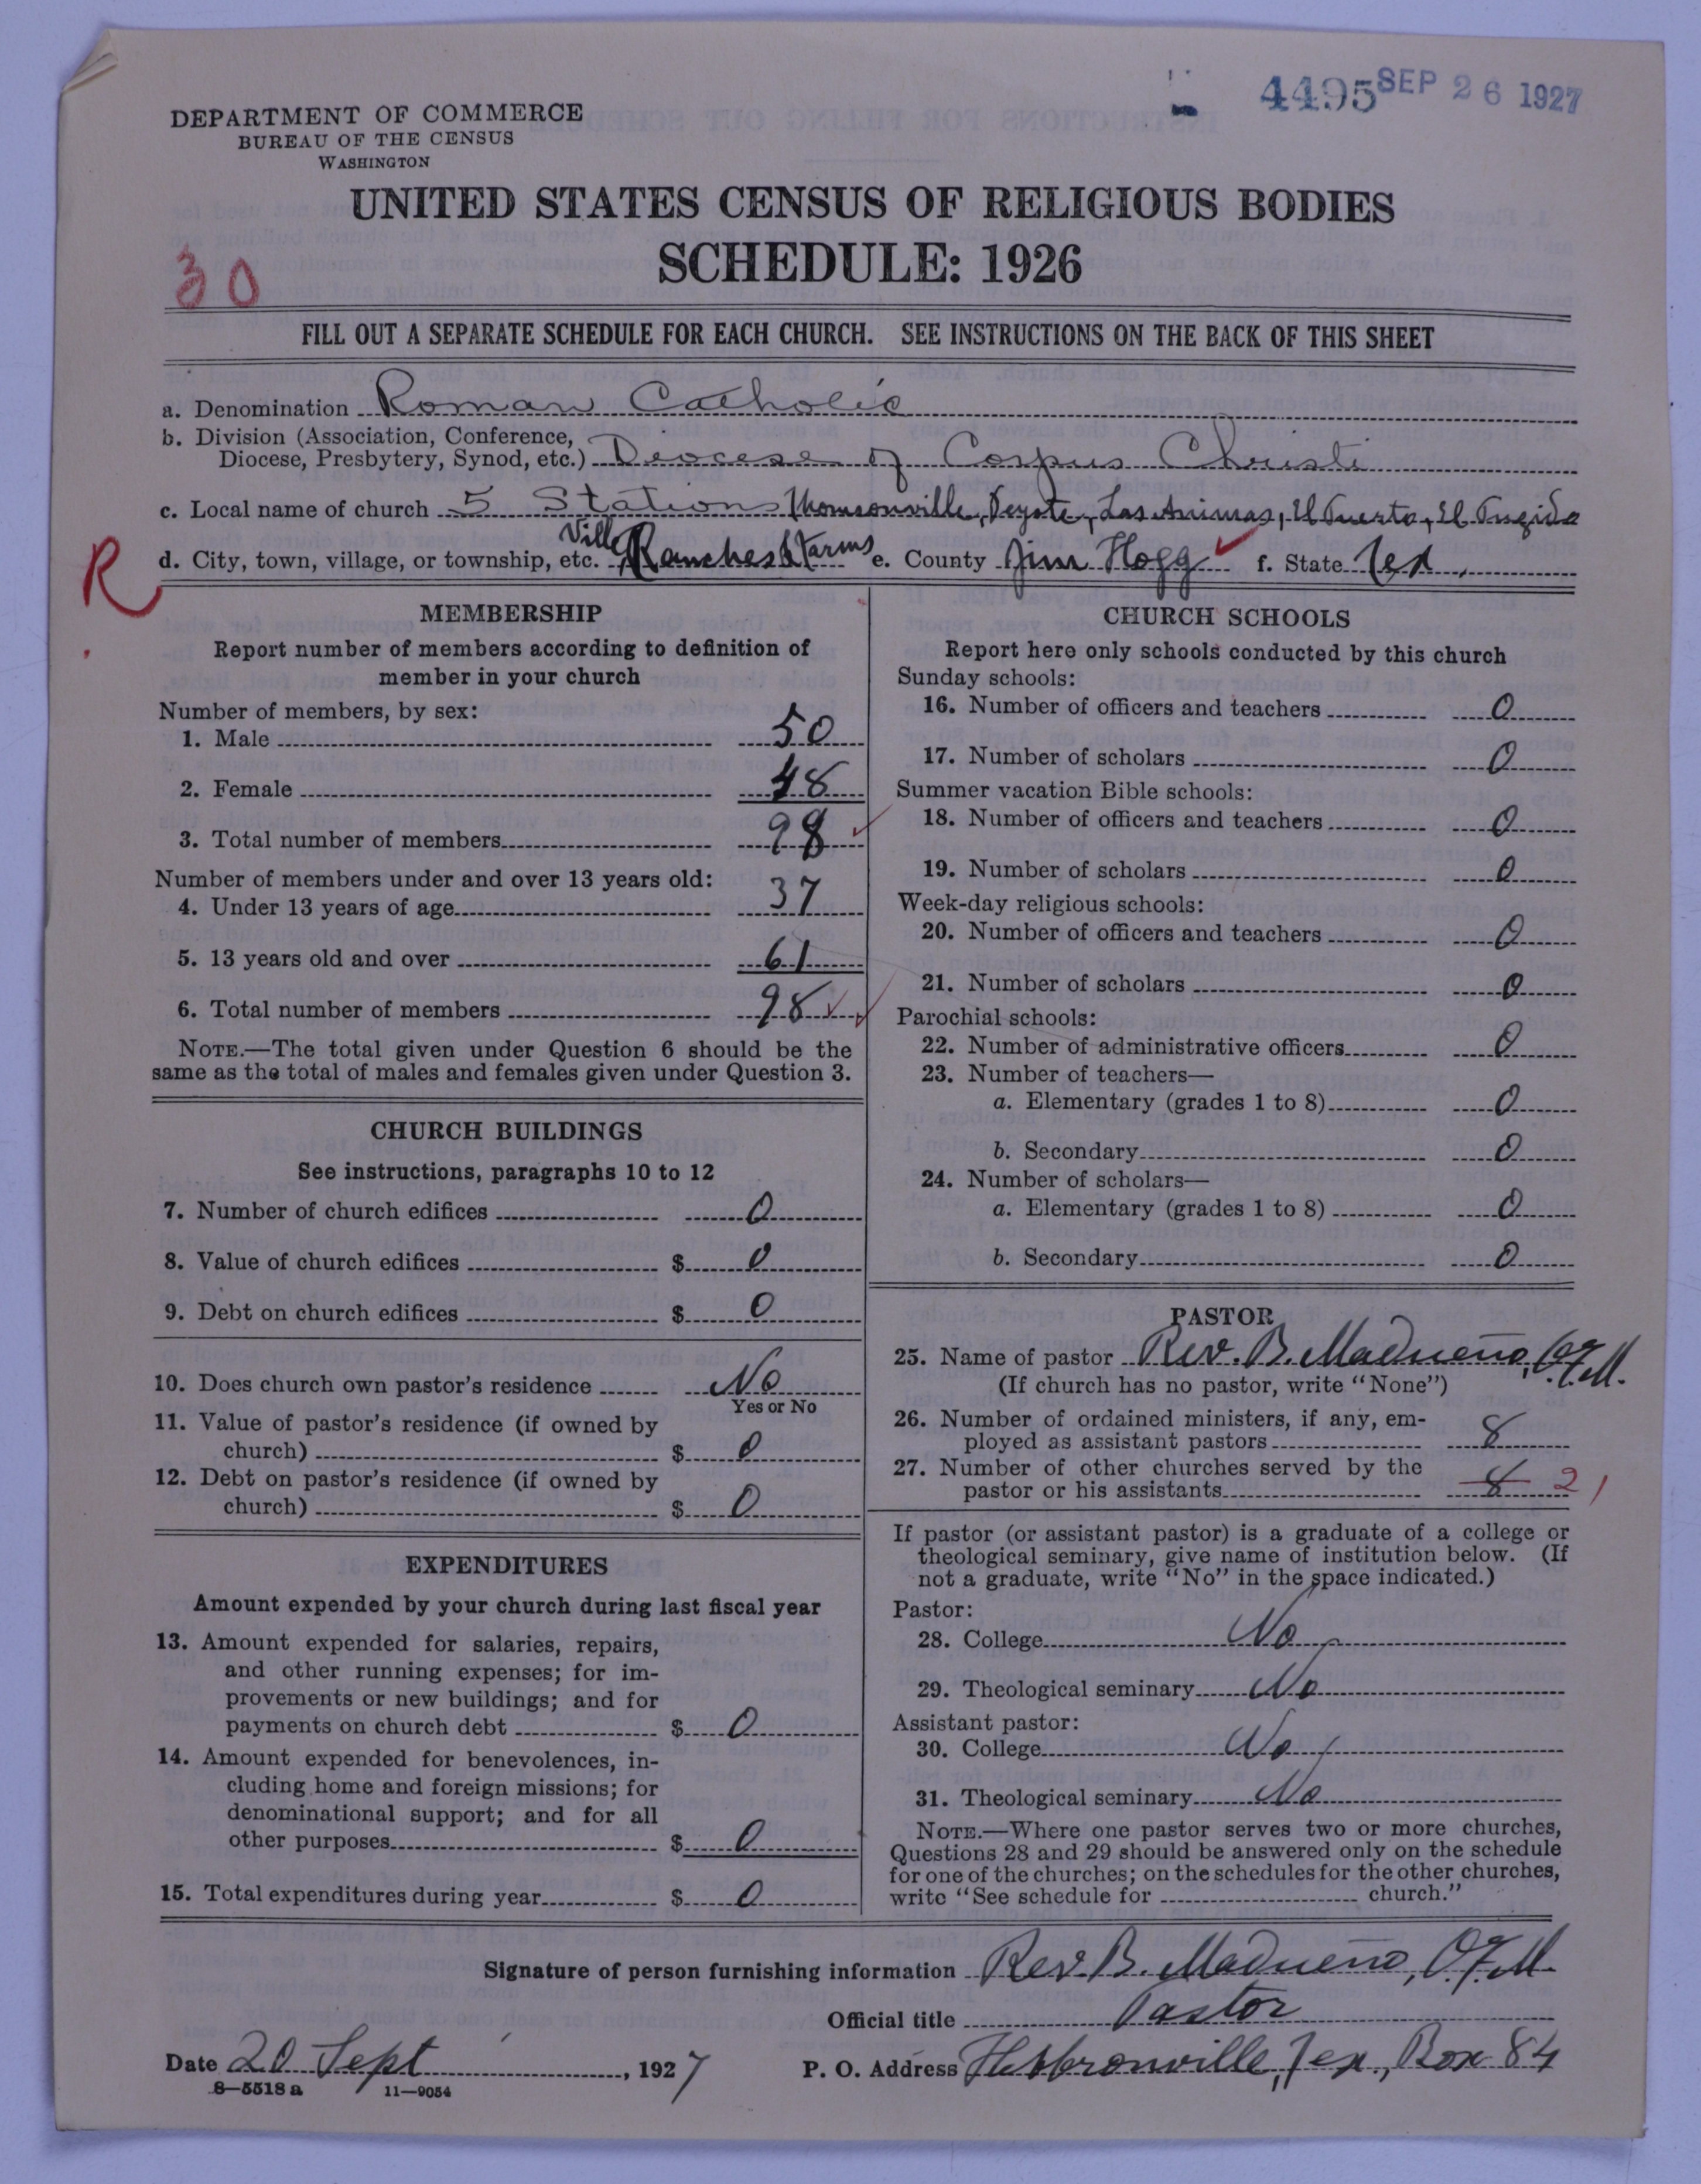 4495 SEP 26 1927
DEPARTMENT OF COMMERCE
BUREAU OF THE CENSUS
WASHINGTON
UNITED STATES CENSUS OF RELIGIOUS BODIES
SCHEDULE: 1926
30
FILL OUT A SEPARATE SCHEDULE FOR EACH CHURCH. SEE INSTRUCTIONS ON THE BACK OF THIS SHEET
a. Denomination Roman Catholic
b. Division (Association, Conference,
Diocese, Presbytery, Synod, etc.) Diocese of Corpus Christi
c. Local name of church 5 Stations Thomsonville, Peyote, Las Animas, El
d. City, town, village, or township, etc. Ville, Ranches & Farms e. County Jim Hogg f. State Tex.
R
MEMBERSHIP
Report number of members according to definition of
member in your church
Number of members, by sex:
1. Male 50
2. Female 48
3. Total number of members 98
Number of members under and over 13 years old:
4. Under 13 years of age 37
5. 13 years old and over 61
6. Total number of members 98
NOTE.—The total given under Question 6 should be the
same as the total of males and females given under Question 3.
CHURCH BUILDINGS
See instructions, paragraphs 10 to 12
7. Number of church edifices 0
8. Value of church edifices $ 0
9. Debt on church edifices $ 0
10. Does church own pastor's residence No
Yes or No
11. Value of pastor's residence (if owned by
church) $ 0
12. Debt on pastor's residence (if owned by
church) $ 0
EXPENDITURES
Amount expended by your church during last fiscal year
13. Amount expended for salaries, repairs,
and other running expenses; for im-
provements or new buildings; and for
payments on church debt $ 0
14. Amount expended for benevolences, in-
cluding home and foreign missions; for
denominational support; and for all
other purposes $ 0
15. Total expenditures during year $ 0
CHURCH SCHOOLS
Report here only schools conducted by this church
Sunday schools:
16. Number of officers and teachers 0
17. Number of scholars 0
Summer vacation Bible schools:
18. Number of officers and teachers 0
19. Number of scholars 0
Week-day religious schools:
20. Number of officers and teachers 0
21. Number of scholars 0
Parochial schools:
22. Number of administrative officers 0
23. Number of teachers—
a. Elementary (grades 1 to 8) 0
b. Secondary 0
24. Number of scholars—
a. Elementary (grades 1 to 8) 0
b. Secondary 0
PASTOR
25. Name of pastor Rev. B. Madueño, O.F.M.
(If church has no pastor, write "None")
26. Number of ordained ministers, if any, em-
ployed as assistant pastors 8
27. Number of other churches served by the
pastor or his assistants 8 21
If pastor (or assistant pastor) is a graduate of a college or
theological seminary, give name of institution below. (If
not a graduate, write "No" in the space indicated.)
Pastor:
28. College No
29. Theological seminary No
Assistant pastor:
30. College No
31. Theological seminary No
NOTE.—Where one pastor serves two or more churches,
Questions 28 and 29 should be answered only on the schedule
for one of the churches; on the schedules for the other churches,
write "See schedule for church."
Signature of person furnishing information Rev. B. Madueño, O.F.M.
Official title Pastor
Date 20 Sept, 1927 P. O. Address Hebbronville, Tex., Box 84
8—5518 a 11—9054